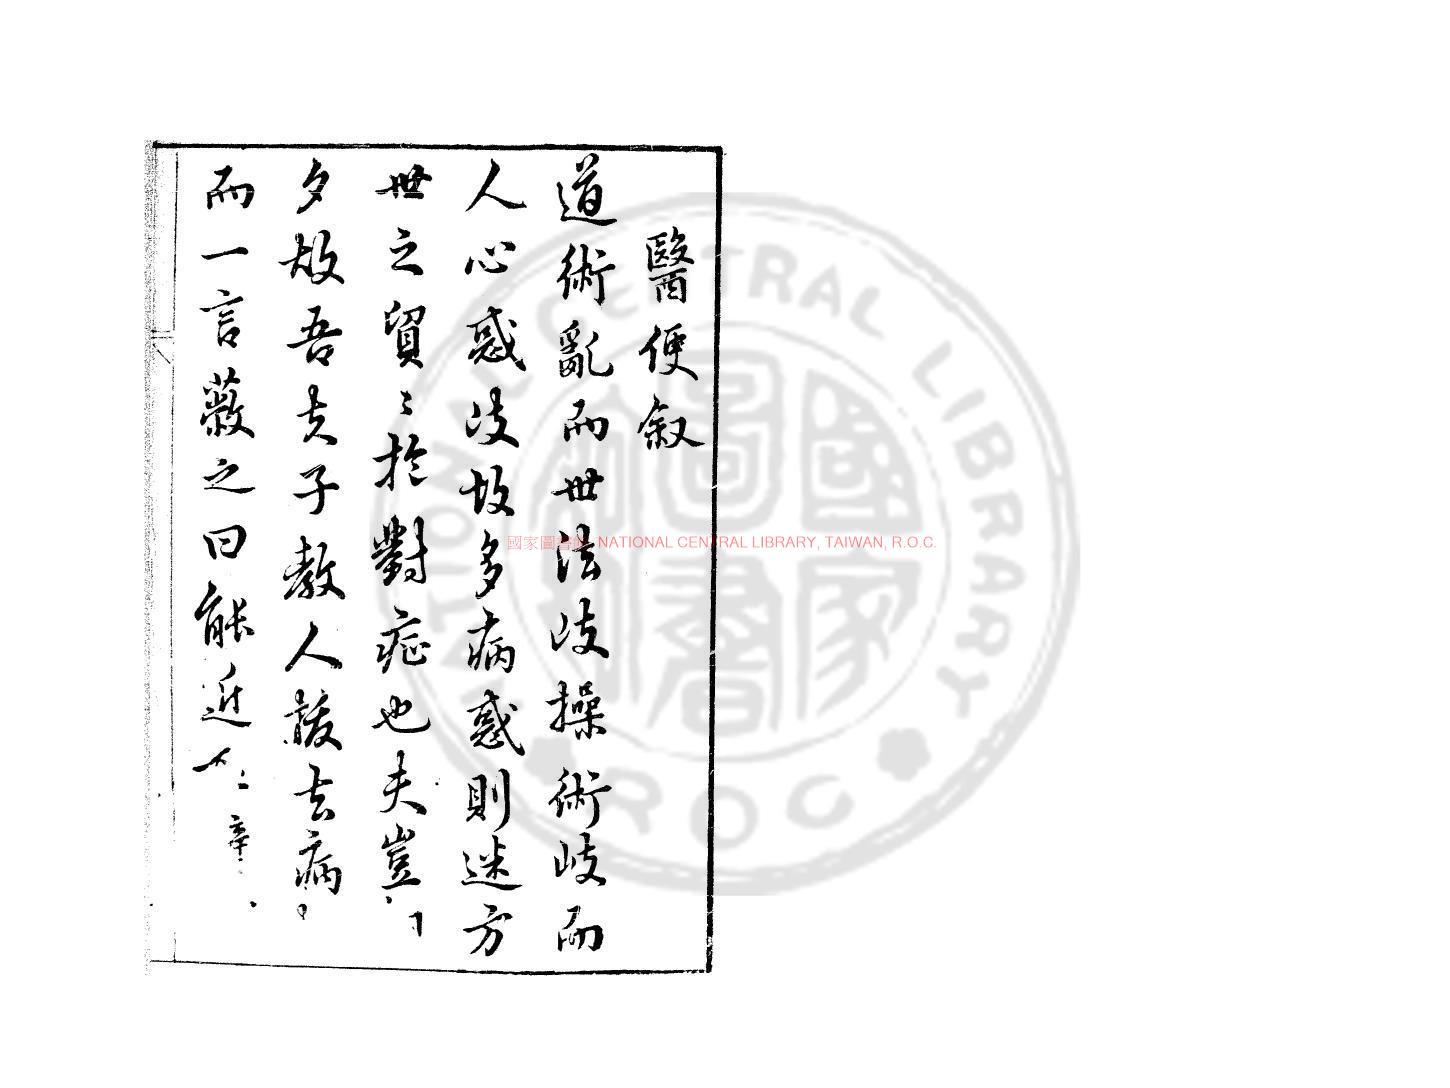 醫便敘
道術亂而世法歧操術歧而
人心惑歧故多病惑則迷方
世之貿〻於對症也夫豈
夕故吾夫子教人 去病
而一言蔽之曰能近
國家圖書館 NATIONAL CENTRAL LIBRARY, TAIWAN, R.O.C.
NATIONAL CENTRAL LIBRARY
ROC
國家圖書